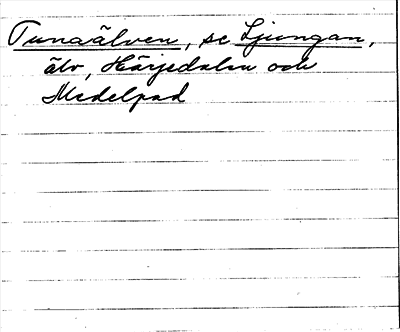 Tunaälven, se Ljungan,
älv, Härjedalen och
Medelpad